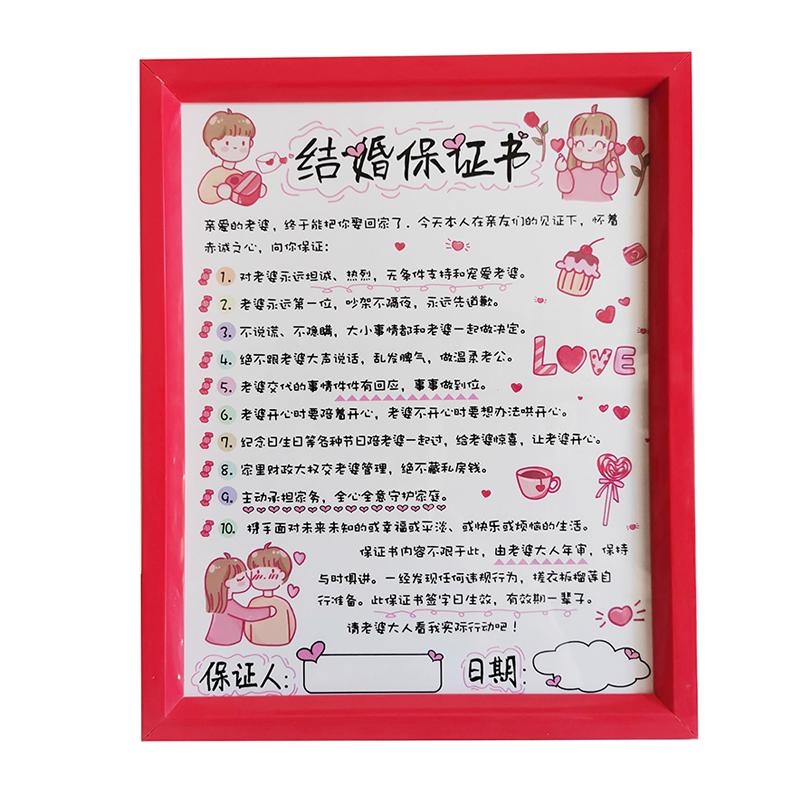 结婚保证书
亲爱的老婆，终于能把你娶回家了．今天本人在亲友们的见证下，怀着
赤诚之心，向你保证：
1. 对老婆永远坦诚、热烈，无条件支持和宠爱老婆。
2. 老婆永远第一位，吵架不隔夜，永远先道歉。
3. 不说谎、不隐瞒，大小事情都和老婆一起做决定。
4. 绝不跟老婆大声说话，乱发脾气，做温柔老公。
5. 老婆交代的事情件件有回应，事事做到位。
6. 老婆开心时要陪着开心，老婆不开心时要想办法哄开心。
7. 纪念日生日等各种节日陪老婆一起过，给老婆惊喜，让老婆开心。
8. 家里财政大权交老婆管理，绝不藏私房钱。
9. 主动承担家务，全心全意守护家庭。
10. 携手面对未来未知的或幸福或平淡、或快乐或烦恼的生活。
LOVE
保证书内容不限于此，由老婆大人年审，保持
与时俱进。一经发现任何违规行为，搓衣板榴莲自
行准备。此保证书签字日生效，有效期一辈子。
请老婆大人看我实际行动吧！
保证人：
日期：